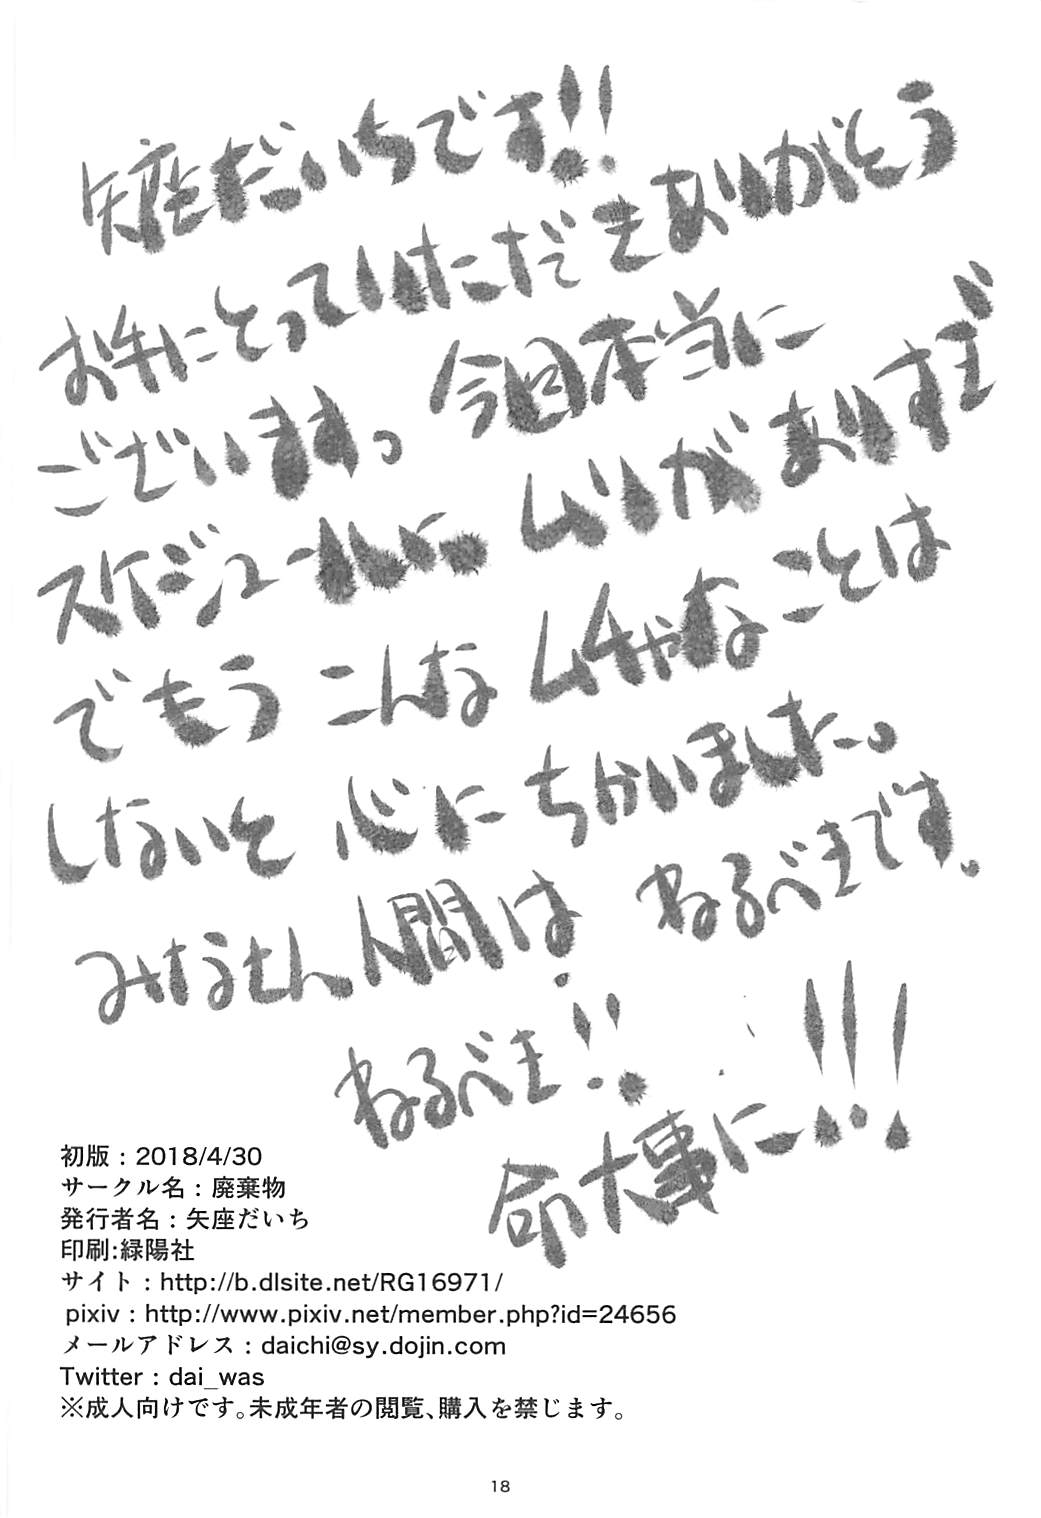 矢座だいちです!!
お手にとっていただきありがとう
ございます。今回本当に
スケジュールに。ムリがありすぎ
でもう こんな ムチャなことは
しないと 心に ちかいました。
みなさん人間は ねるべきです。
ねるべき!!
命大事に…!!!
初版：2018/4/30
サークル名：廃棄物
発行者名：矢座だいち
印刷:緑陽社
サイト：http://b.dlsite.net/RG16971/
pixiv：http://www.pixiv.net/member.php?id=24656
メールアドレス：daichi@sy.dojin.com
Twitter：dai_was
※成人向けです。未成年者の閲覧、購入を禁じます。
18